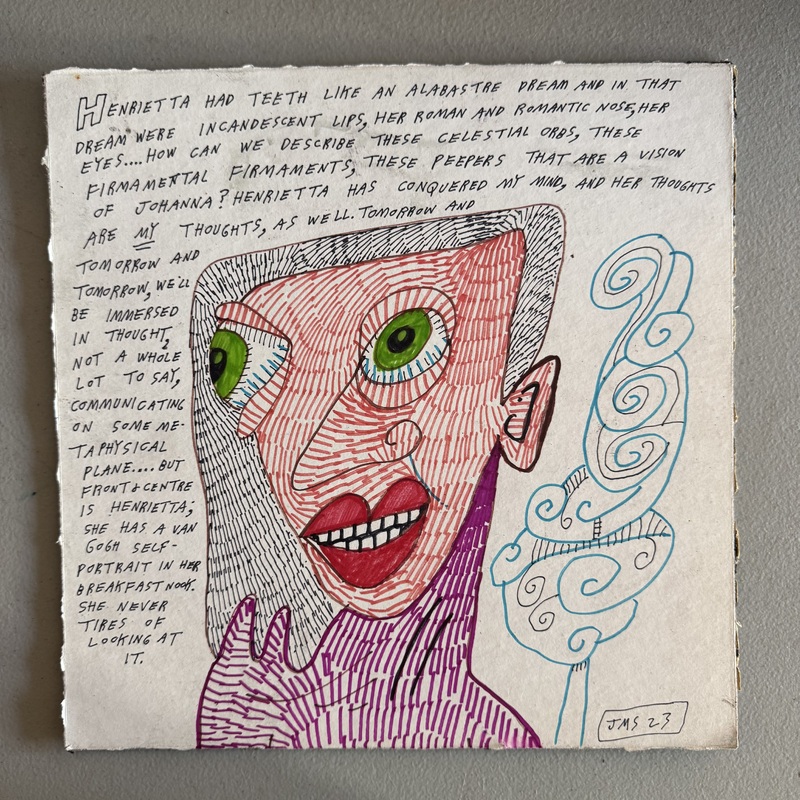 HENRIETTA HAD TEETH LIKE AN ALABASTRE DREAM AND IN THAT
DREAM WERE INCANDESCENT LIPS, HER ROMAN AND ROMANTIC NOSE, HER
EYES.... HOW CAN WE DESCRIBE THESE CELESTIAL ORBS, THESE
FIRMAMENTAL FIRMAMENTS, THESE PEEPERS THAT ARE A VISION
OF JOHANNA? HENRIETTA HAS CONQUERED MY MIND, AND HER THOUGHTS
ARE MY THOUGHTS, AS WELL. TOMORROW AND
TOMORROW AND
TOMORROW, WE'LL
BE IMMERSED
IN THOUGHT,
NOT A WHOLE
LOT TO SAY,
COMMUNICATING
ON SOME ME-
TAPHYSICAL
PLANE.... BUT
FRONT & CENTRE
IS HENRIETTA;
SHE HAS A VAN
GOGH SELF-
PORTRAIT IN HER
BREAKFAST NOOK.
SHE NEVER
TIRES OF
LOOKING AT
IT.
JMS 23